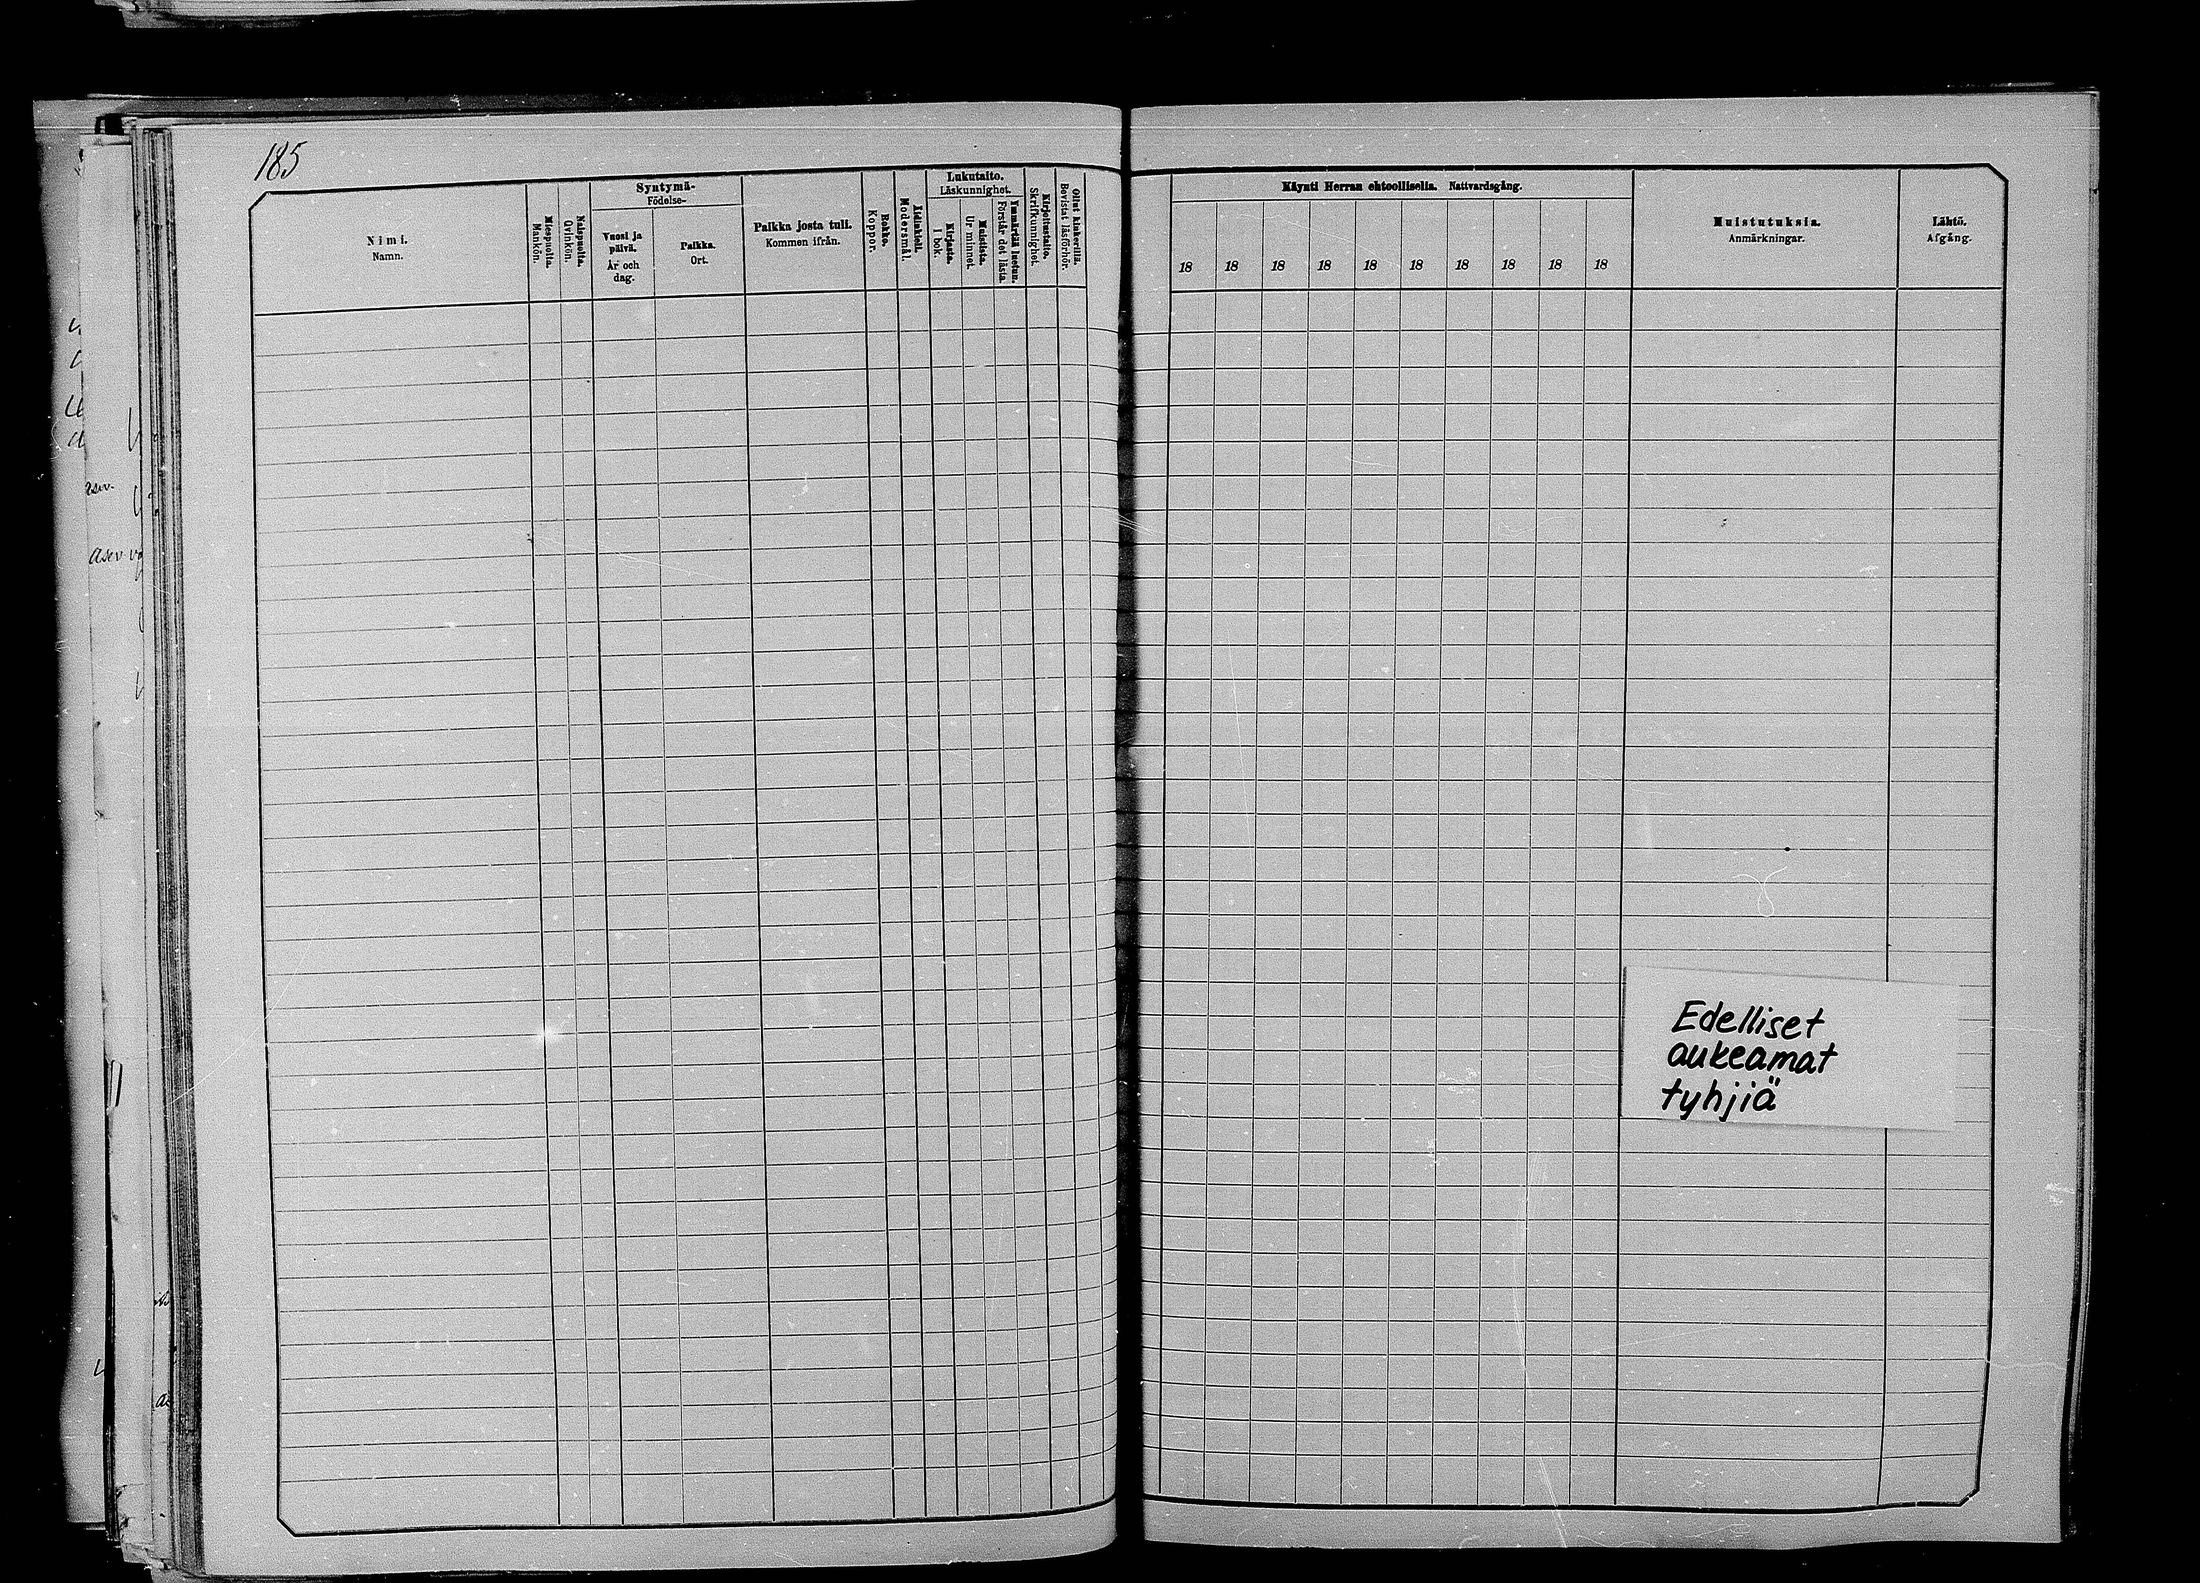 185
Nimi.
Namn.
Miespuolta.
Mankön.
Naispuolta.
Qvinkön.
Syntymä-
Födelse-
Vuosi ja
päivä.
År och
dag.
Paikka.
Ort.
Paikka josta tuli.
Kommen ifrån.
Rokko.
Koppor.
Äidinkieli.
Modersmål.
Lukutaito.
Läskunnighet.
Kirjasta.
I bok.
Muistista.
Ur minnet.
Ymmärtää luetun.
Förstår det lästa
Kirjoitustaito.
Skrifkunnighet.
Ollut kinkerillä.
Bevistat läsförhör.
Käynti Herran ehtoollisella. Nattvardsgång.
18 18 18 18 18 18 18 18 18 18
Muistutuksia.
Anmärkningar.
Lähtö.
Afgång.
Edelliset
aukeamat
tyhjiä
asev.
asev